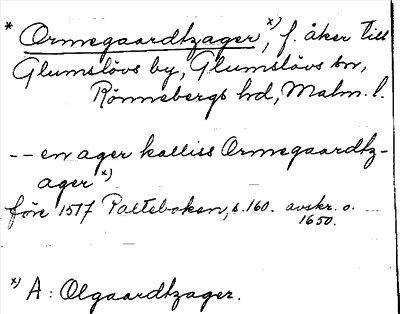 * Ormegaardtzager x), f. åker till
Glumslövs by, Glumslövs sn,
Rönnebergs hd, Malm. l.
-- en ager kalliss Ormegaardtz-
ager x)
före 1517 Palteboken, s. 160. avskr. o. ...
1650.
x) A: Olgaardtzager.